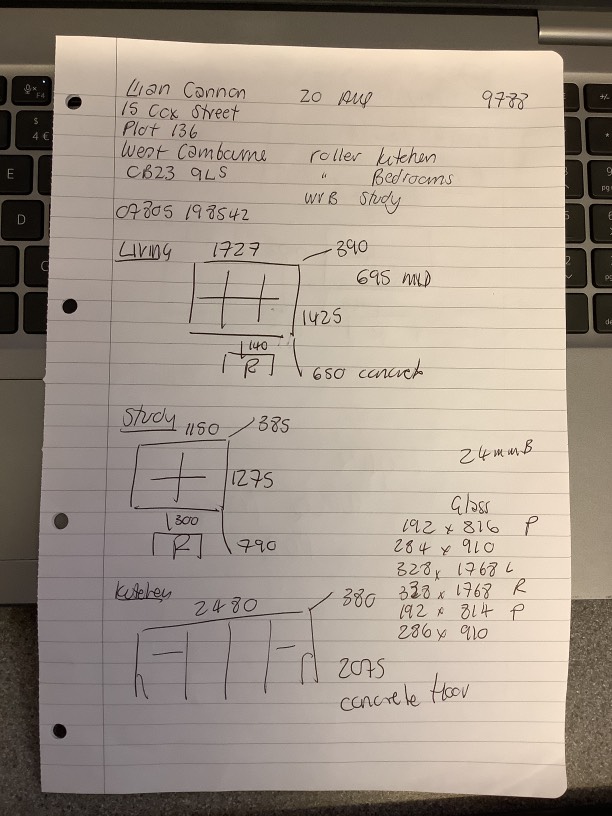 Lian Cannon 20 Aug 9788
15 Cox Street
Plot 136
West Cambourne roller kitchen
CB23 9LS " Bedrooms
WVB Study
07805 198542
Living 1727 390
695
1425
140
R 650 concrete
Study 1150 385
24mmB
1275
Glass
300 192 x 816 P
R 790 284 x 910
328 x 1768 L
Kitchen 380 328 x 1768 R
2480 192 x 814 P
286 x 910
2075
concrete floor